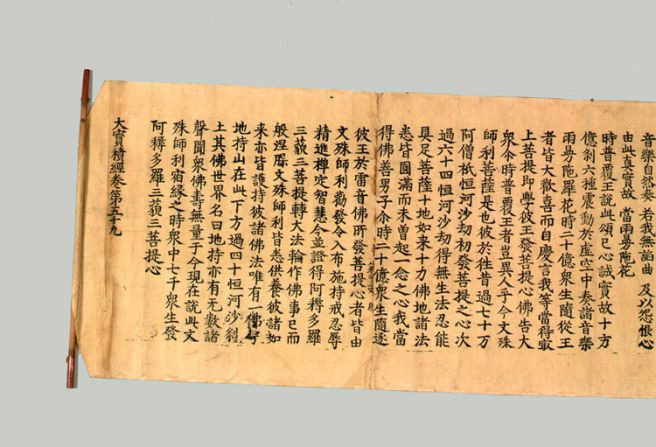 音樂自然奏 若我無諂曲 及以怨恨心
由此真實故 當雨曼陁花
時普覆王說此頌已心誠實故十方
億剎六種震動於虛空中奏諸音樂
雨曼陁羅花時二十億衆生隨從王
者皆大歡喜而自慶言我等當得㝡
上菩提即學彼王發菩提心佛告大
衆尒時普覆王者豈異人乎今文殊
師利菩薩是也彼於徃昔過七十万
阿僧祇恒河沙劫初發菩提之心次
過六十四恒河沙劫得無生法忍能
具足菩薩十地如来十力佛地諸法
悉皆圓滿而未曾起一念之心我當
得佛善男子尒時二十億衆生隨逐
彼王於雷音佛所發菩提心者皆由
文殊師利勸發令入布施持戒忍辱
精進禪定智慧今並證得阿耨多羅
三藐三菩提轉大法輪作佛事已而
般涅槃文殊師利皆悉供養彼諸如
来亦皆護持彼諸佛法唯有一佛
地持山在此下方過四十恒河沙剎
土其佛世界名曰地持亦有无數諸
聲聞衆佛壽無量于今現在說此文
殊師利宿緣之時衆中七千衆生發
阿耨多羅三藐三菩提心
大寶積經卷第五十九